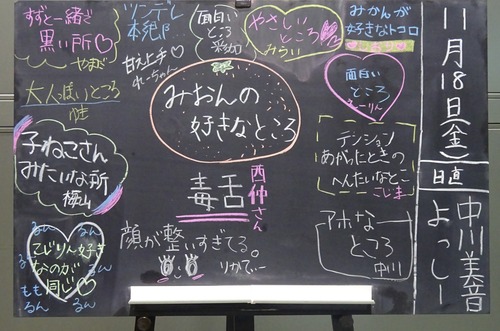 11月18日(金)
日直
中川美音
よっしー
みおんの
好きなところ
ずっと一緒さ
黒い所♡
やまだ
ツンデレ
本絶
甘え上手♡
れーちゃん
面白い
ところ
彩加
やさしい
ところ
みらい
みかんが
好きなトコロ
大人っぽいところ
面白い
ところ
子ねこさん
みたいな所
梅山
毒舌
西仲さん
テンション
あがったときの
へんたいなとこ
こじま
顔が整いすぎてる。
りかてぃー
アホな
ところ
中川
るん
るん
こじりん好き
なのが
同じ♡
もも
るん
るん